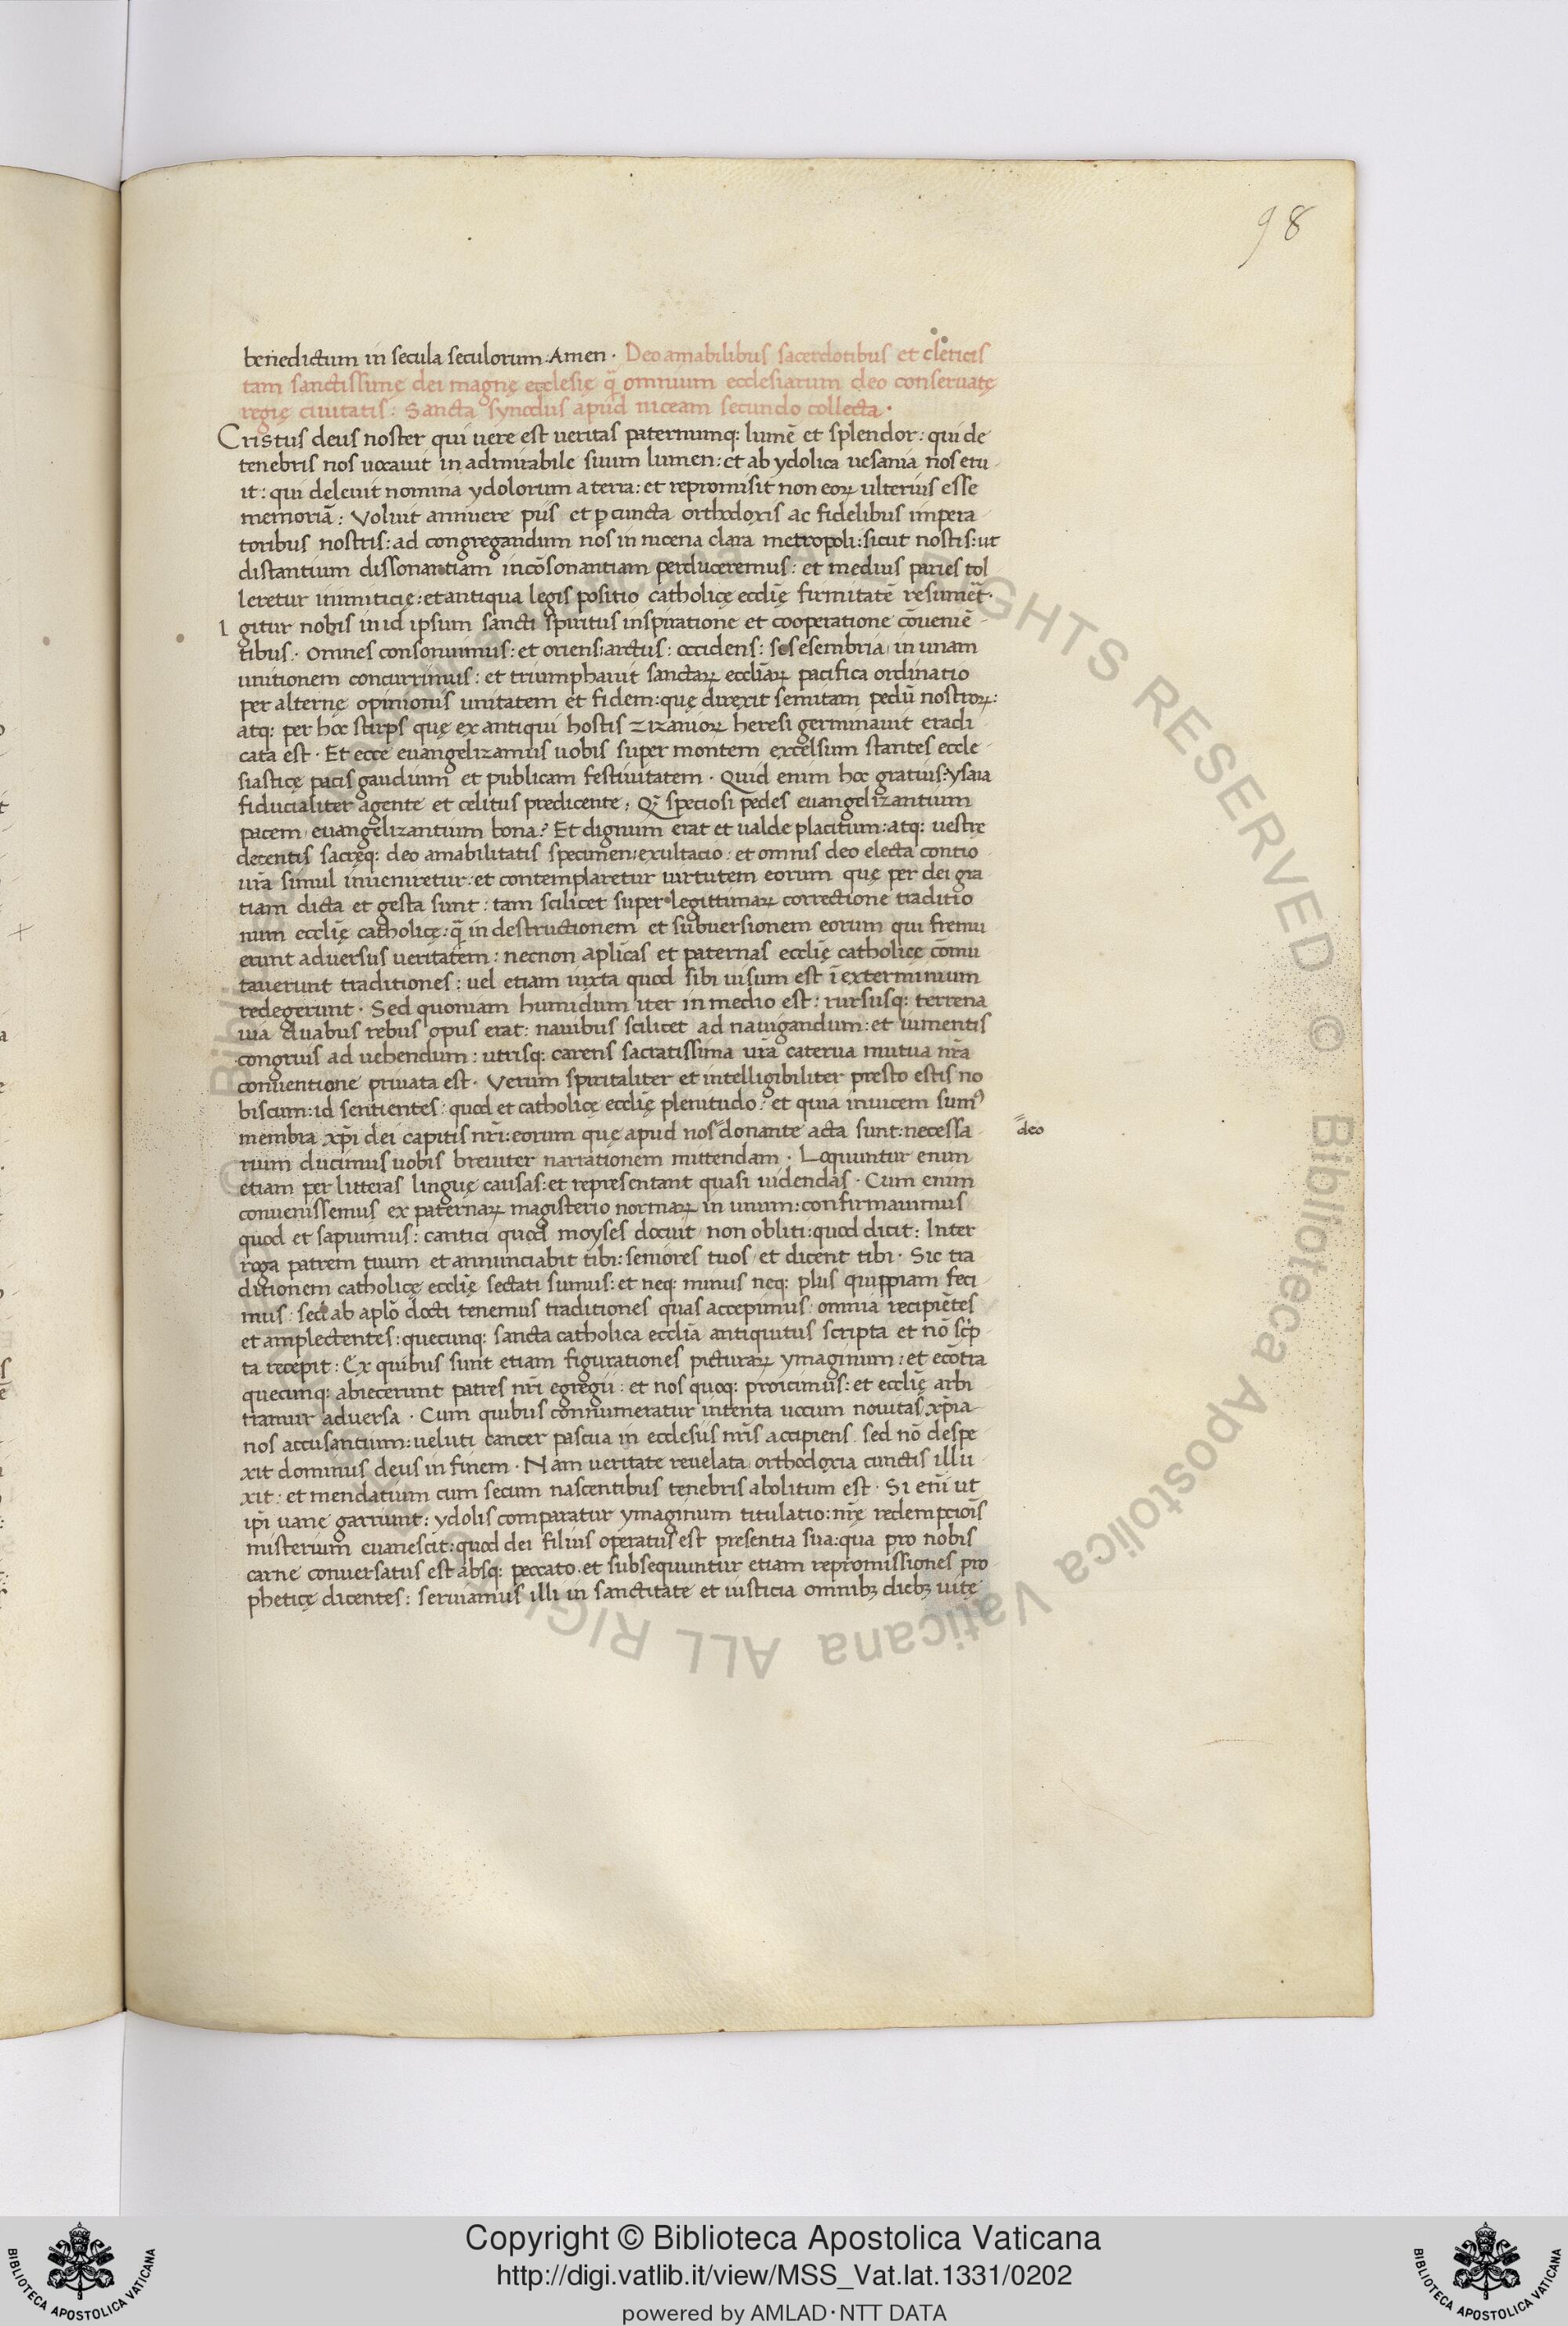 98
benedictum in secula seculorum: Amen · Deo amabilibus sacerdotibus et clericis
tam sanctissimę dei magnę ecclesię q̄ omnium ecclesiarum deo conseruatę
regię ciuitatis: Sancta synodus apud niceam secundo collecta·
Cristus deus noster qui uere est ueritas paternumq: lumē et splendor: qui de
tenebris nos uocauit in admirabile suum lumen: et ab ydolica uesania nos eru
it: qui deleuit nomina ydolorum a terra: et repromisit non eoꝝ ulterius esse
memoriā: Voluit annuere piis et ꝑ cuncta orthodoxis ac fidelibus impera
toribus nostris: ad congregandum nos in nicena clara metropoli: sicut nostis: ut
distantium dissonantiam in cōsonantiam perduceremus: et medius paries tol
leretur inimiticię: et antiqua legis positio catholicę ecclię firmitatē resumēt·
Igitur nobis in id ipsum sancti spiritus inspiratione et cooperatione cōueniē
tibus· omnes consonuimus: et oriens: arctus: occidens: sesembria: in unam
unitionem concurrimus: et triumphauit sanctaꝝ eccliāꝝ pacifica ordinatio
per alternę opinionis unitatem et fidem: quę direxit semitam pedū nostroꝝ:
atq: per hoc stirps quę ex antiqui hostis zizanioꝝ heresi germinauit eradi
cata est· Et ecce euangelizamus uobis super montem excelsum stantes eccle
siasticę pacis gaudium et publicam festiuitatem· Quid enim hoc gratius: ysaia
fiducialiter agente et celitus predicente; Q̄ speciosi pedes euangelizantium
pacem, euangelizantium bona? Et dignum erat et ualde placitum: atq: uestrę
decentis sacręq: deo amabilitatis specimen: exultacio: et omnis deo electa contio
ur̄a simul inueniretur: et contemplaretur uirtutem eorum quę per dei gra
tiam dicta et gesta sunt: tam scilicet super legittimaꝝ correctione traditio
num ecclię catholicę: q̄ in destructionem et subuersionem eorum qui fremu
erunt aduersus ueritatem: necnon aplicas et paternas ecclię catholicę cōmu
tauerunt traditiones: uel etiam iuxta quod sibi uisum est ī exterminium
redegerunt· Sed quoniam humidum iter in medio est: rursusq: terrena
uia duabus rebus opus erat: nauibus scilicet ad nauigandum: et iumentis
congruis ad uehendum: utrisq: carens sacratissima ur̄a caterua mutua nr̄a
conuentione priuata est· Verum spiritaliter et intelligibiliter presto estis no
biscum: id sentientes: quod et catholicę ecclię plenitudo: et quia inuicem sumꝰ
membra xp̄i dei capitis nr̄i: eorum quę apud nos donante acta sunt: necessa
deo
rium ducimus uobis breuiter narrationem mittendam· Loquuntur enim
etiam per litteras linguę causas: et representant quasi uidendas· Cum enim
conuenissemus ex paternaꝝ magisterio normaꝝ in unum: confirmauimus
quod et sapuimus: cantici quod moyses docuit, non obliti: quod dicit: Inter
roga patrem tuum et annunciabit tibi: seniores tuos, et dicent tibi· Sic tra
ditionem catholicę ecclię sectati sumus: et neq: minus neq: plus quippiam feci
mus: sed ab aplō docti tenemus traditiones quas accepimus: omnia recipiētes
et amplectentes: quecunq: sancta catholica ecclīa antiquitus scripta et nō sc̄p
ta recepit: Ex quibus sunt etiam figurationes picturaꝝ ymaginum: et ecōtra
quecunq: abiecerunt patres nr̄i egregii: et nos quoq: proicimus: et ecclię arbi
tramur aduersa· Cum quibus connumeratur intenta uocum nouitas, xp̄ia
nos accusantium: ueluti cancer pascua in ecclesiis nr̄is accipiens. sed nō despe
xit dominus deus in finem· Nam ueritate reuelata, orthodoxia cunctis illu
xit: et mendatium cum secum nascentibus tenebris abolitum est· Si enī ut
ip̄i uane garriunt: ydolis comparatur ymaginum titulatio: nr̄ę redempcioīs
misterium euanescit: quod dei filius operatus est presentia sua: qua pro nobis
carne conuersatus est absq: peccato. et subsequuntur etiam repromissiones pro
pheticę dicentes: seruiamus illi in sanctitate et iusticia omnibꝫ diebꝫ uitę
© Biblioteca Apostolica Vaticana ALL RIGHTS RESERVED
Copyright © Biblioteca Apostolica Vaticana
http://digi.vatlib.it/view/MSS_Vat.lat.1331/0202
powered by AMLAD·NTT DATA
BIBLIOTECA APOSTOLICA VATICANA
BIBLIOTECA APOSTOLICA VATICANA